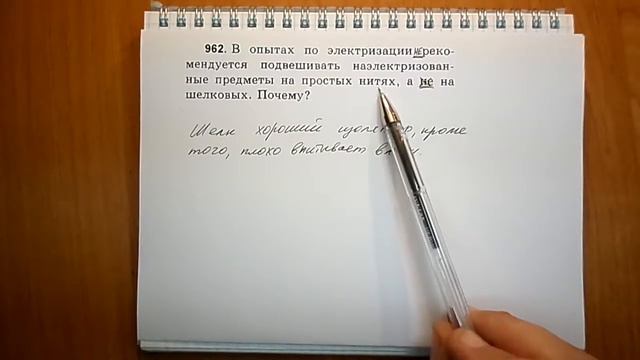 962. В опытах по электризации не реко-
мендуется подвешивать наэлектризован-
ные предметы на простых нитях, а не на
шелковых. Почему?
Шелк хороший изолятор, кроме
того, плохо впитывает